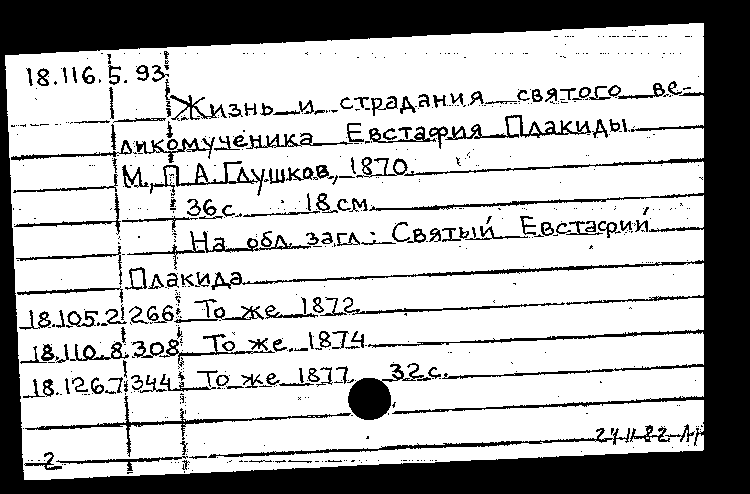 18.116.5.93
Жизнь и страдания святого ве-
ликомученика Евстафия Плакиды
М., П А. Глушков, 1870.
36с. 18см.
На обл. загл.: Святый Евстафий
Плакида
18.105.2.266 То же 1872
18.110.8.308 То же 1874
18.126.7.344 То же 1877 32с.
24.11.82
2